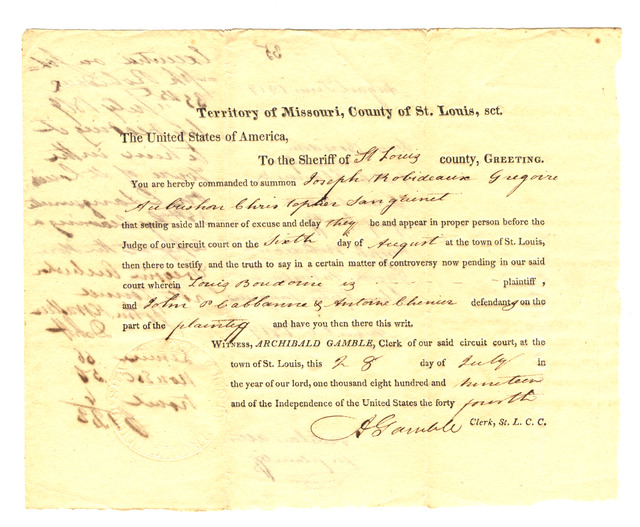 35
Territory of Missouri, County of St. Louis, sct.
The United States of America,
To the Sheriff of St Louis county, GREETING.
You are hereby commanded to summon Joseph Robideaux Gregoire
Aubushon Christopher Sanguinet
that setting aside all manner of excuse and delay they be and appear in proper person before the
Judge of our circuit court on the Sixth day of August at the town of St. Louis,
then there to testify and the truth to say in a certain matter of controversy now pending in our said
court wherein Louis Boudoine is plaintiff,
and John P Cabbanne & Antoine Chenier defendants on the
part of the plaintiff and have you then there this writ.
WITNESS, ARCHIBALD GAMBLE, Clerk of our said circuit court, at the
town of St. Louis, this 28 day of July in
the year of our lord, one thousand eight hundred and nineteen
and of the Independence of the United States the forty fourth
A Gamble Clerk, St. L. C. C.